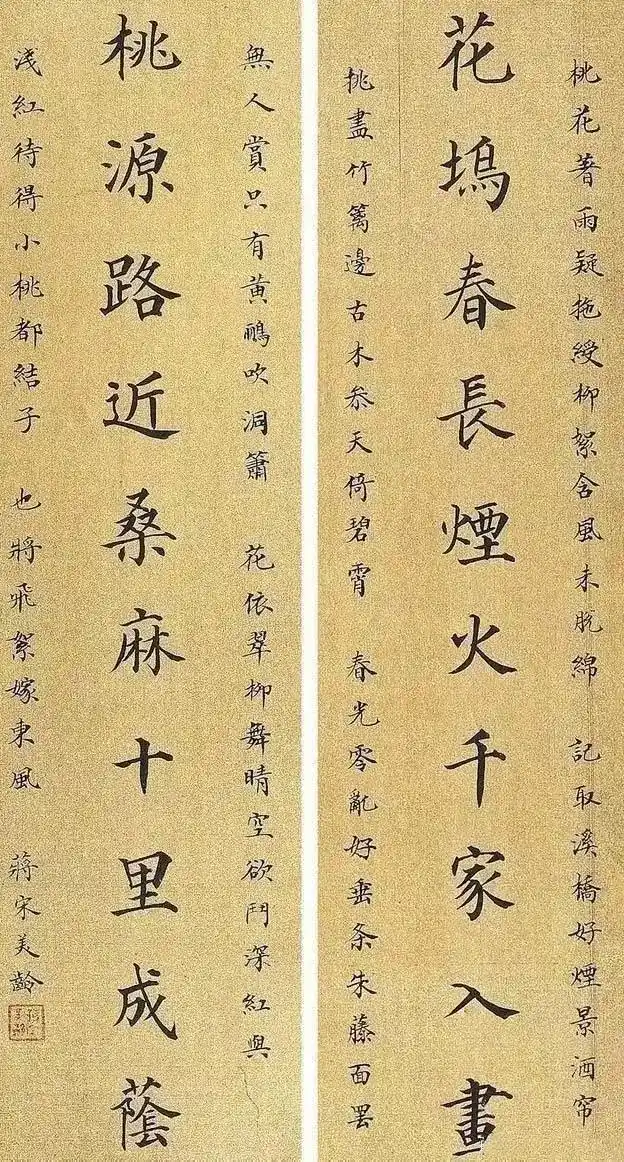 桃花著雨疑拖綬柳絮含風未脫綿　記取溪橋好煙景酒帘
花塢春長煙火千家入畫
挑盡竹籬邊古木叅天倚碧霄　春光零亂好垂条朱藤面罢
無人賞只有黃鸝吹洞簫　花依翠柳舞晴空欲鬥深紅與
桃源路近桑麻十里成蔭
淺紅待得小桃都結子　也將飛絮嫁東風　蔣宋美齡